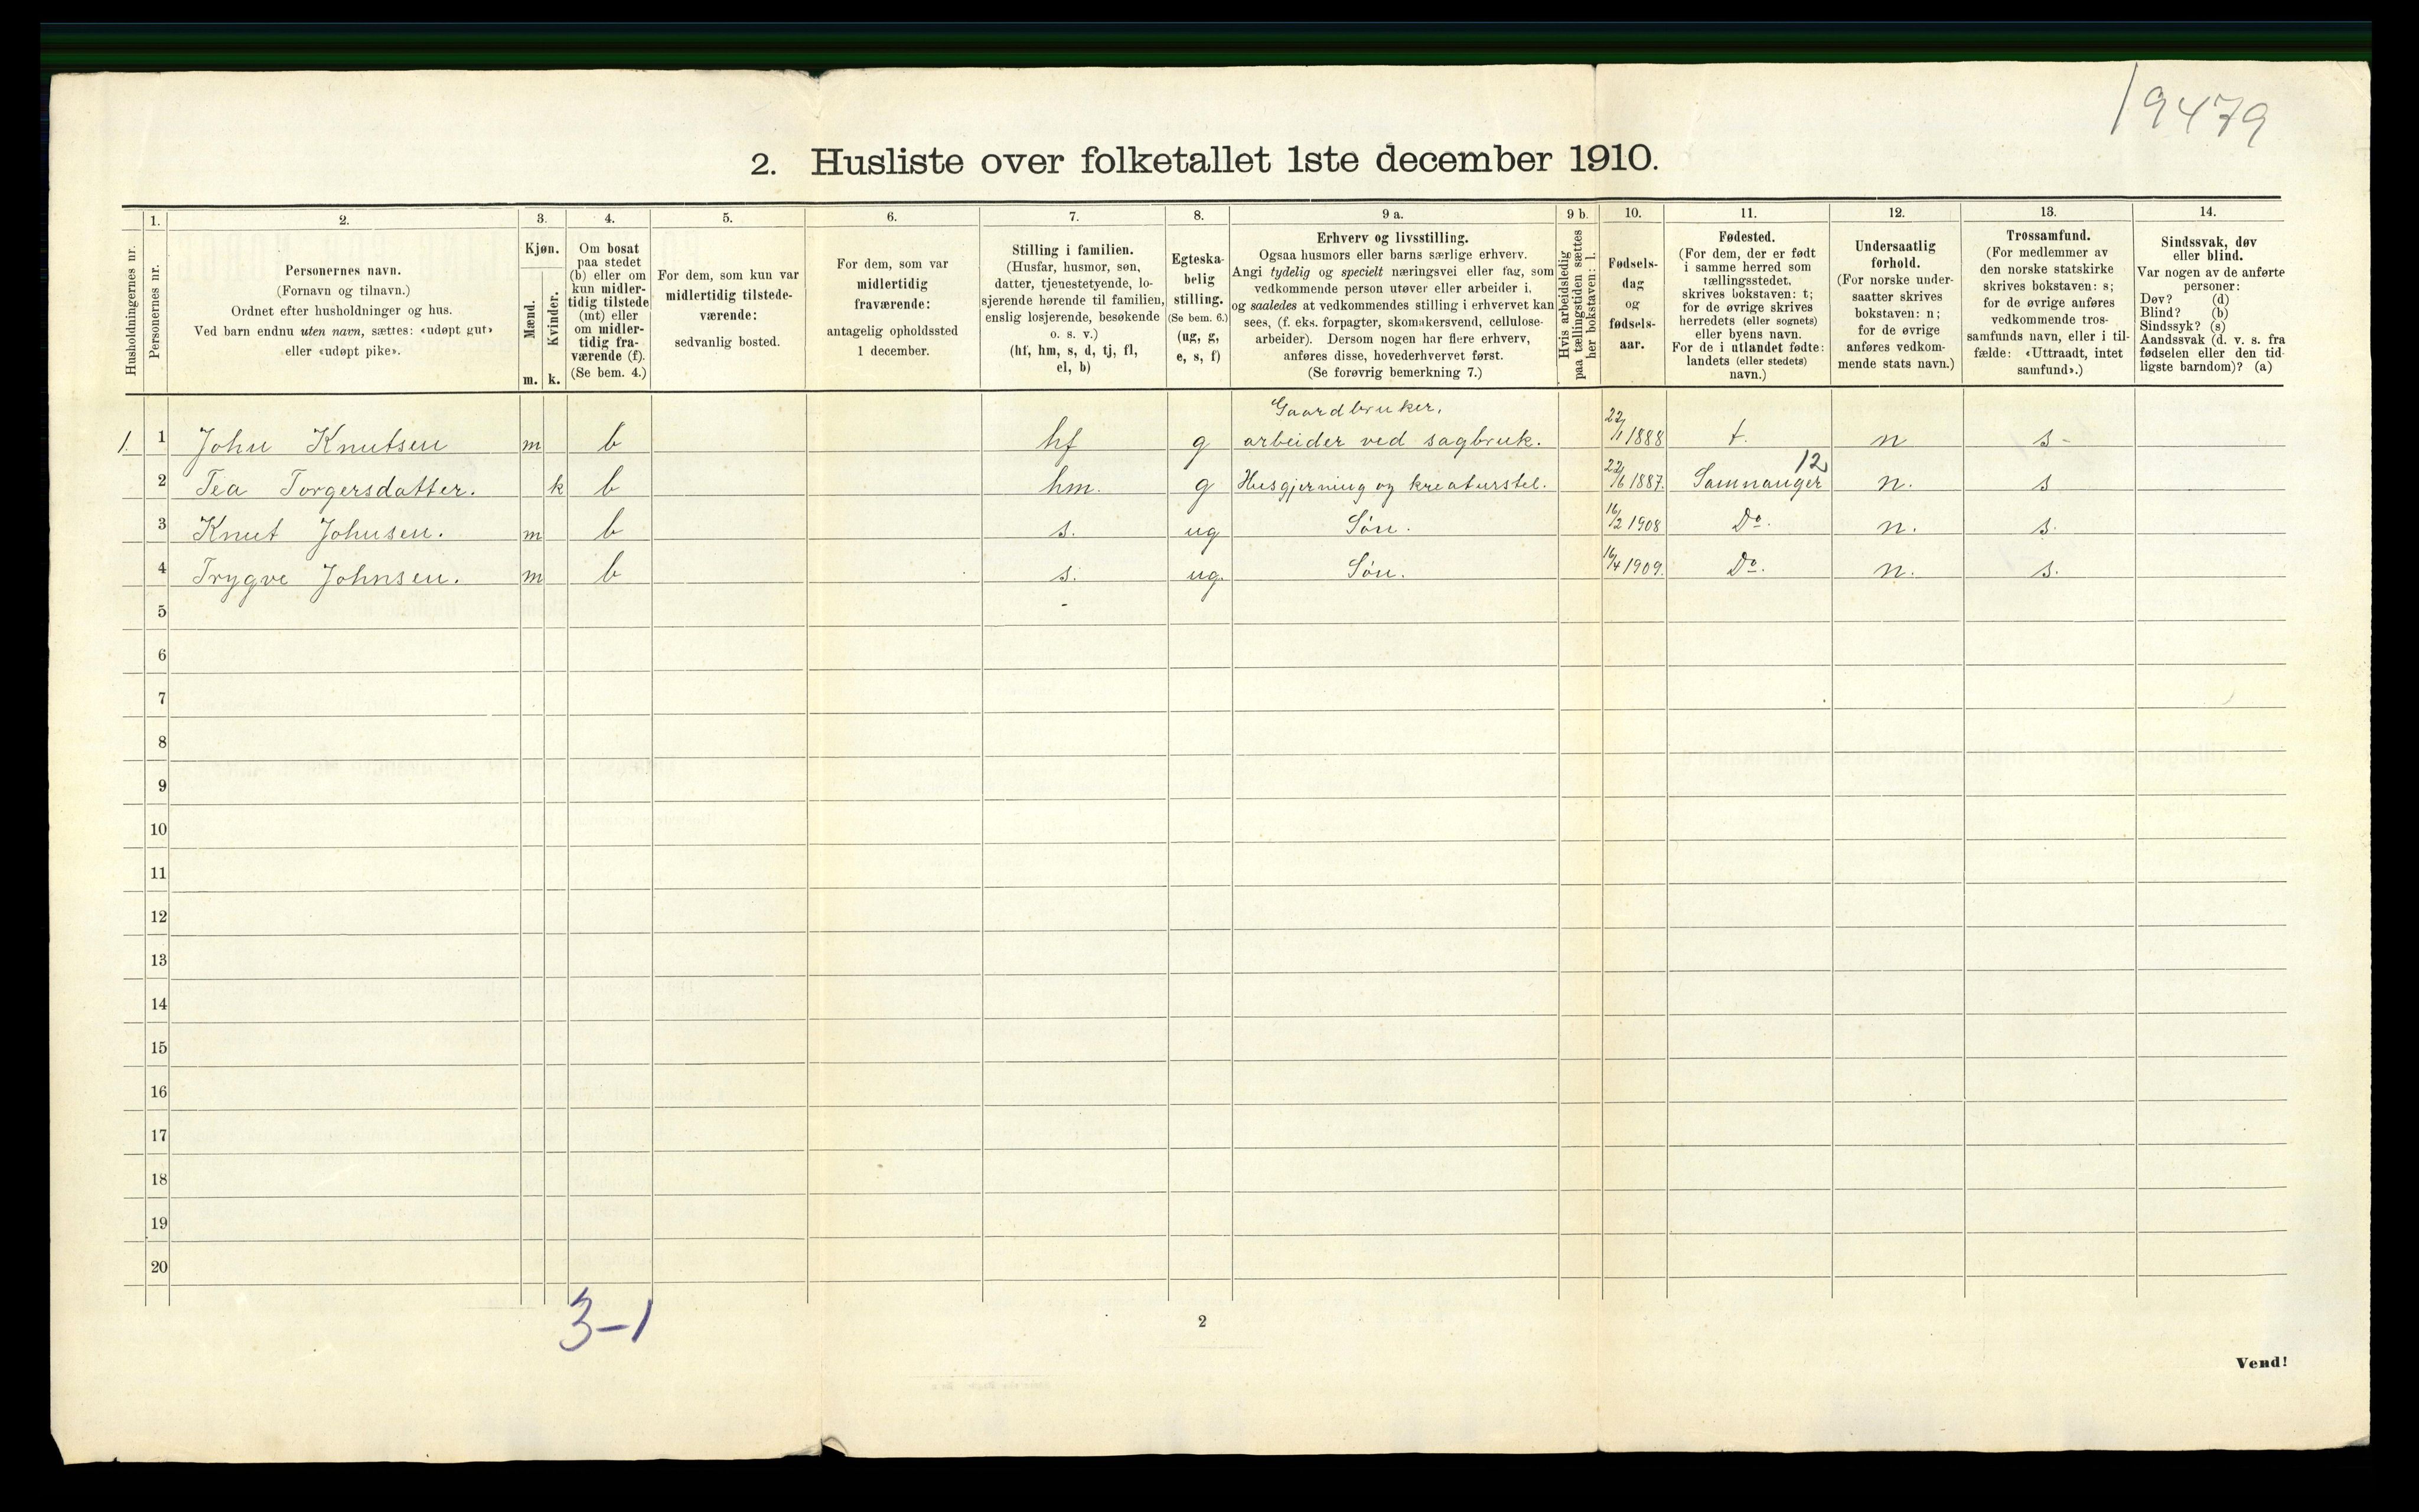 19479
2. Husliste over folketallet 1ste december 1910.
Husholdningernes nr.
1.
Personernes nr.
2.
Personernes navn.
(Fornavn og tilnavn.)
Ordnet efter husholdninger og hus.
Ved barn endnu uten navn, sættes: «udøpt gut»
eller «udøpt pike».
3.
Kjøn.
Mænd.
Kvinder.
m. k.
4.
Om bosat
paa stedet
(b) eller om
kun midler-
tidig tilstede
(mt) eller
om midler-
tidig fra-
værende (f).
(Se bem. 4.)
5.
For dem, som kun var
midlertidig tilstede-
værende:
sedvanlig bosted.
6.
For dem, som var
midlertidig
fraværende:
antagelig opholdssted
1 december.
7.
Stilling i familien.
(Husfar, husmor, søn,
datter, tjenestetyende, lo-
sjerende hørende til familien,
enslig losjerende, besøkende
o. s. v.)
(hf, hm, s, d, tj, fl,
el, b)
8.
Egteska-
belig
stilling.
(Se bem. 6.)
(ug, g,
e, s, f)
9 a.
Erhverv og livsstilling.
Ogsaa husmors eller barns særlige erhverv.
Angi tydelig og specielt næringsvei eller fag, som
vedkommende person utøver eller arbeider i,
og saaledes at vedkommendes stilling i erhvervet kan
sees, (f. eks. forpagter, skomakersvend, cellulose-
arbeider). Dersom nogen har flere erhverv,
anføres disse, hovederhvervet først.
(Se forøvrig bemerkning 7.)
9 b.
Hvis arbeidsledig
paa tællingstiden sættes
her bokstaven: l.
10.
Fødsels-
dag
og
fødsels-
aar.
11.
Fødested.
(For dem, der er født
i samme herred som
tællingsstedet,
skrives bokstaven: t;
for de øvrige skrives
herredets (eller sognets)
eller byens navn.
For de i utlandet fødte:
landets (eller stedets)
navn.)
12.
Undersaatlig
forhold.
(For norske under-
saatter skrives
bokstaven: n;
for de øvrige
anføres vedkom-
mende stats navn.)
13.
Trossamfund.
(For medlemmer av
den norske statskirke
skrives bokstaven: s;
for de øvrige anføres
vedkommende tros-
samfunds navn, eller i til-
fælde: «Uttraadt, intet
samfund».)
14.
Sindssvak, døv
eller blind.
Var nogen av de anførte
personer:
Døv? (d)
Blind? (b)
Sindssyk? (s)
Aandssvak (d. v. s. fra
fødselen eller den tid-
ligste barndom)? (a)
Gaardbruker,
1. 1 John Knutsen m b hf g arbeider ved sagbruk. 22/11 1888 t. n s -
12
2 Tea Torgersdatter. k b hm. g Husgjerning og kreaturstel. 22/6 1887. Samnanger n. s
3 Knut Johnsen. m b s. ug Søn. 16/2 1908 Do. n. s.
4 Trygve Johnsen. m b s. ug. Søn. 16/4 1909. Do. n. s.
5
6
7
8
9
10
11
12
13
14
15
16
17
18
19
20
3-1
2
Vend!